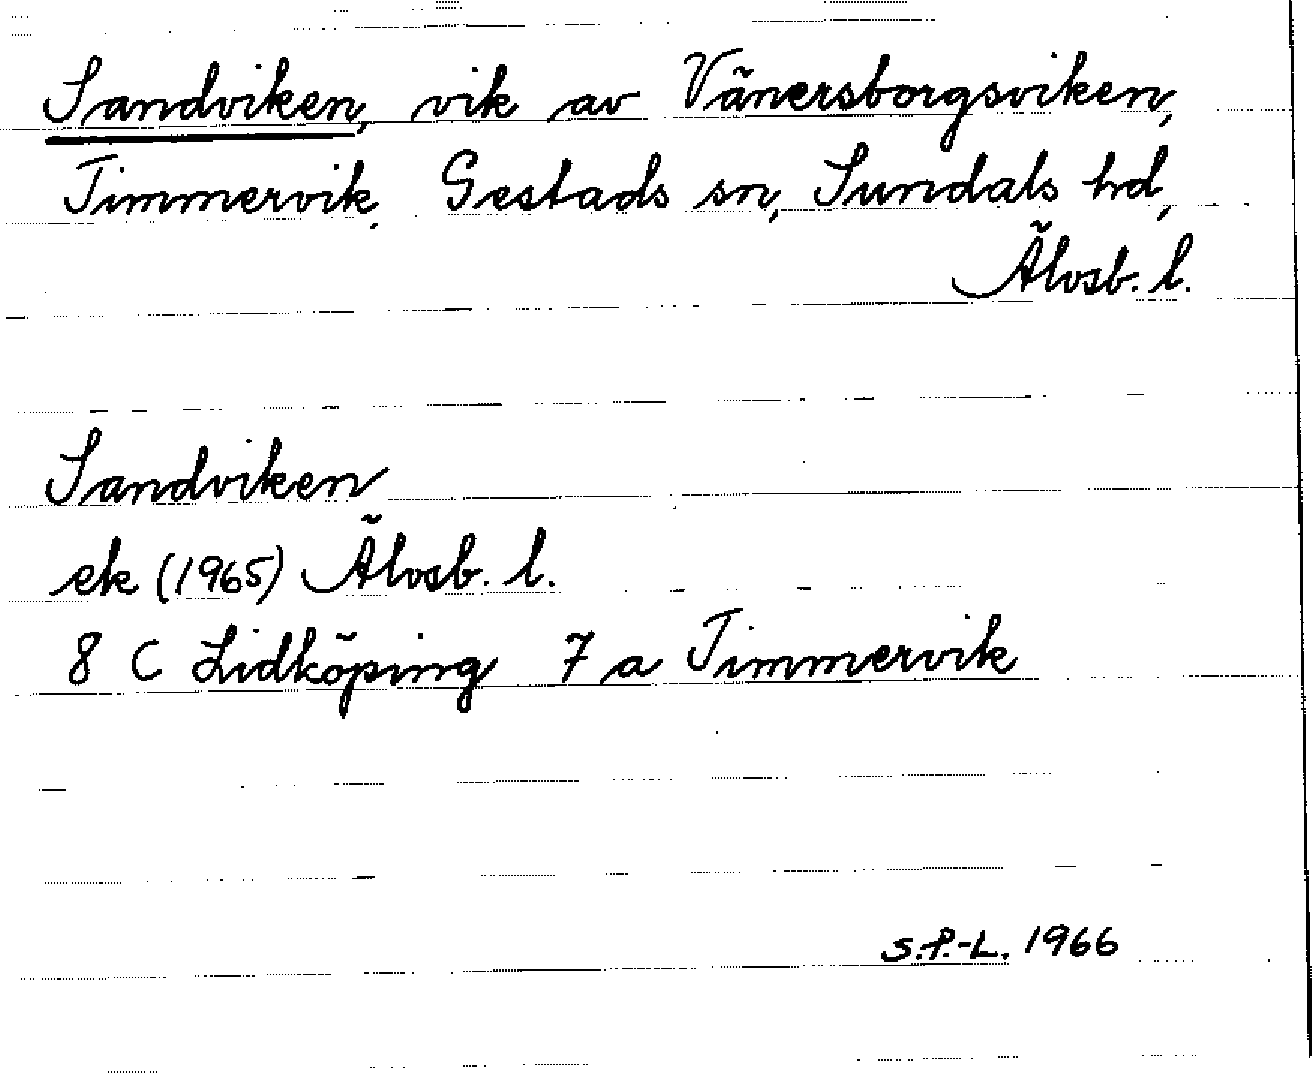 Sandviken, vik av Vänersborgsviken,
Timmervik, Gestads sn, Sundals hd,
Älvsb. l.
Sandviken
ek (1965) Älvsb. l.
8 C Lidköping 7 a Timmervik
S.P.-L. 1966